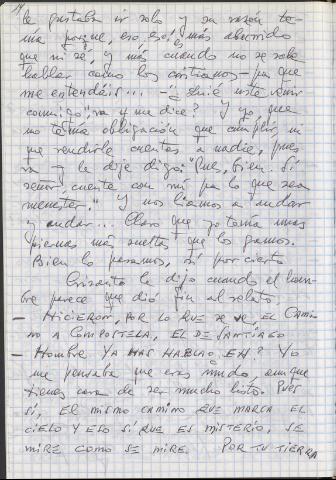 le gustaba ir solo y su razón te-
nía porque eso, eso es más aburrido
que ni sé, y más cuando no se sabe
hablar como los cristianos - pa que
me entendáis... - "¿ usté venir
conmigo" va y me dice? Y yo que
no tenía obligación que cumplir, ni
que rendirle cuentas a nadie, pues
va y le dije digo: "Pues, bien. Sí
señor, cuente con mí pa lo que sea
menester." Y nos liamos a andar
y andar... Claro que yo tenía unas
piernas más sueltas que los gamos.
Bien lo pasamos, sí por cierto
Crisanto le dijo cuando el hom-
bre parece que dió fin al relato.
- HICIERON, POR LO QUE SE VE, EL CAMI-
NO A COMPOSTELA, EL DE SANTIAGO
- Hombre YA HAS HABLAO, EH? Yo
me pensaba que eras mudo, aunque
tienes cara de ser mucho listo. Pues
sí, EL MISMO CAMINO QUE MARCA EL
CIELO Y ESO SÍ QUE ES MISTERIO, SE
MIRE COMO SE MIRE. POR TU TIERRA